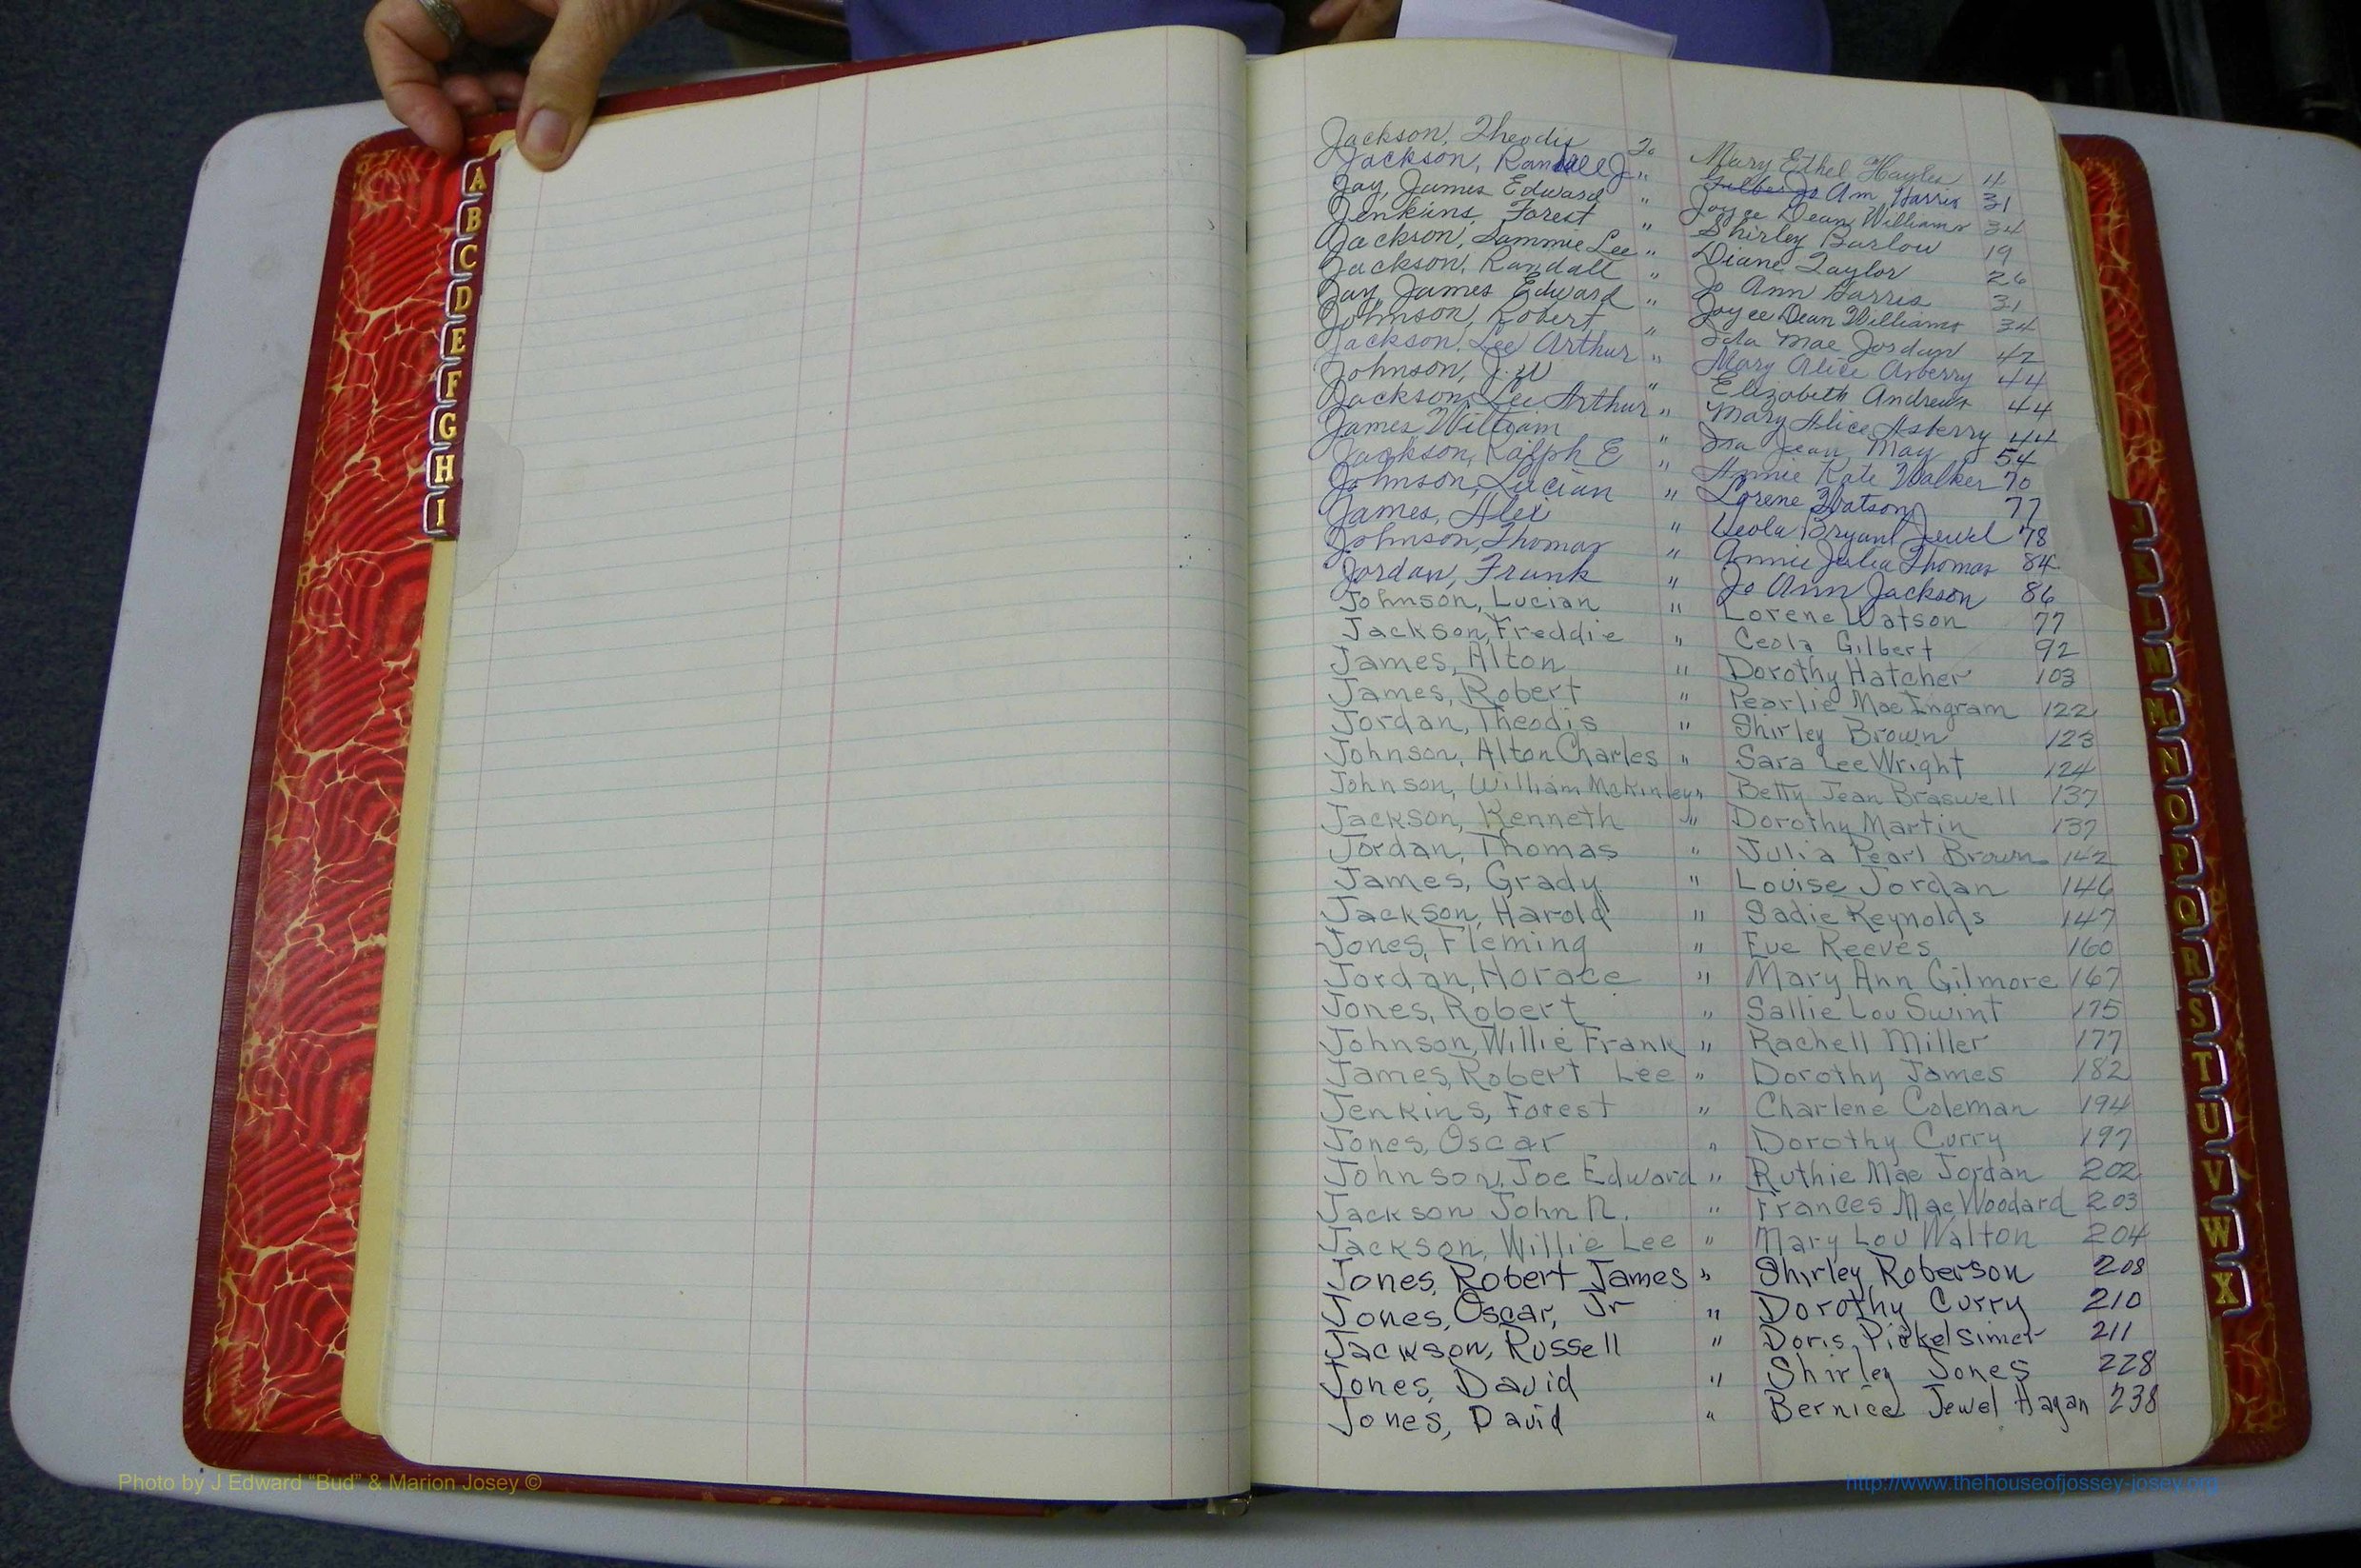 A
B
C
D
E
F
G
H
I
Jackson, Theodis To Mary Ethel Hayles 4
Jackson, Randall J. " Jo Ann Harris 31
Jay, James Edward " Joyce Dean Williams 34
Jenkins, Forest " Shirley Barlow 19
Jackson, Sammie Lee " Diane Taylor 26
Jackson, Randall " Jo Ann Harris 31
Jay, James Edward " Joyce Dean Williams 34
Johnson, Robert " Ida Mae Jordan 42
Jackson, Lee Arthur " Mary Alice Asberry 44
Johnson, J. W " Elizabeth Andrews 44
Jackson, Lee Arthur " Mary Alice Asberry 44
James William " Jean May 54
Jackson, Ralph E " Annie Kate Walker 70
Johnson, Lucian " Lorene Watson 77
James, Alex " Leola Bryant Jewel 78
Johnson, Thomas " Annie Julia Thomas 84
Jordan, Frank " Jo Ann Jackson 86
Johnson, Lucian " Lorene Watson 77
Jackson, Freddie " Ceola Gilbert 92
James, Alton " Dorothy Hatcher 103
James, Robert " Pearlie Mae Ingram 122
Jordan, Theodis " Shirley Brown 123
Johnson, Alton Charles " Sara Lee Wright 124
Johnson, William McKinley " Betty Jean Braswell 137
Jackson, Kenneth " Dorothy Martin 137
Jordan, Thomas " Julia Pearl Brown 142
James, Grady " Louise Jordan 146
Jackson, Harold " Sadie Reynolds 147
Jones, Fleming " Eve Reeves 160
Jordan, Horace " Mary Ann Gilmore 167
Jones, Robert " Sallie Lou Swint 175
Johnson, Willie Frank " Rachell Miller 177
James, Robert Lee " Dorothy James 182
Jenkins, Forest " Charlene Coleman 194
Jones, Oscar " Dorothy Curry 197
Johnson, Joe Edward " Ruthie Mae Jordan 202
Jackson John N. " Frances Mae Woodard 203
Jackson, Willie Lee " Mary Lou Walton 204
Jones, Robert James " Shirley Roberson 208
Jones, Oscar, Jr " Dorothy Curry 210
Jackson, Russell " Doris Pickelsimer 211
Jones, David " Shirley Jones 228
Jones, David " Bernice Jewel Hagan 238
J
K
L
M
Mc
N
O
P
Q
R
S
T
U
V
W
X
Photo by J Edward “Bud” & Marion Josey ©
http://www.thehouseofjossey-josey.org